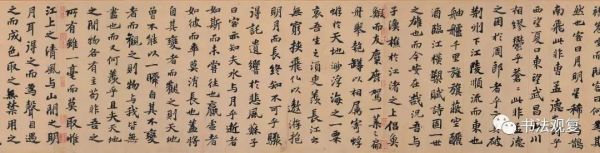 然也客曰月明星稀烏鵲
南飛此非曹孟德之詩乎
西望夏口東望武昌山川
相繆鬱乎蒼蒼此非孟德
之困於周郎者乎方其破
荊州下江陵順流而東也
舳艫千里旌旗蔽空釃
酒臨江橫槊賦詩固一世
之雄也而今安在哉況吾與
子漁樵於江渚之上侶魚
鰕而友麋鹿駕一葉之扁
舟舉匏樽以相屬寄蜉
蝣於天地渺浮海之一粟
哀吾生之須臾羨長江之
無窮挾飛仙以遨遊抱
明月而長終知不可乎驟
得託遺響於悲風蘇子
曰客亦知夫水與月乎逝者
如斯而未嘗往也盈虛者
如彼而卒莫消長也蓋將
自其變者而觀之則天地
曾不能以一瞬自其不變
者而觀之則物與我皆無
盡也而又何羨乎且夫天地
之間物各有主苟非吾之
所有雖一毫而莫取惟
江上之清風與山間之明
月耳得之而為聲目遇
之而成色取之無禁用之
书法观复